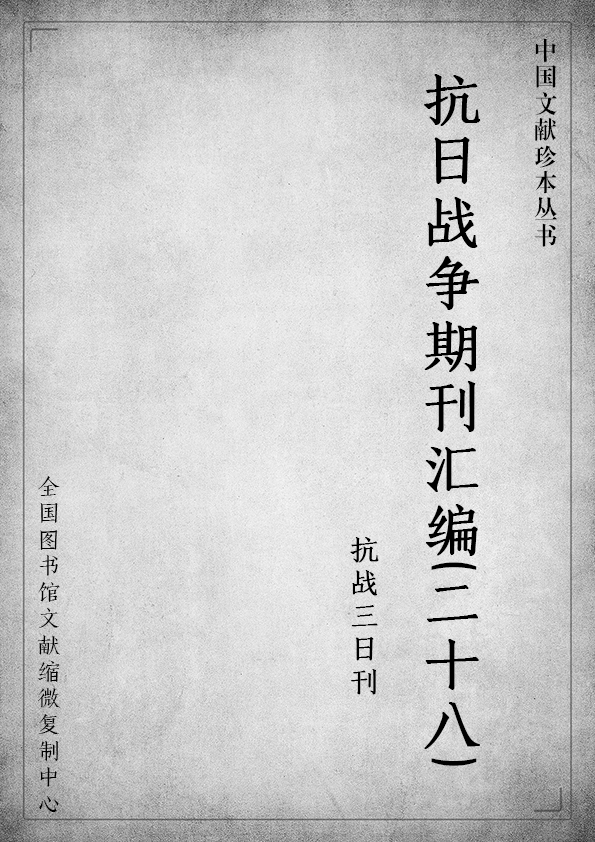 中国文献珍本丛书
抗日战争期刊汇编(二十八)
抗战三日刊
全国图书馆文献缩微复制中心